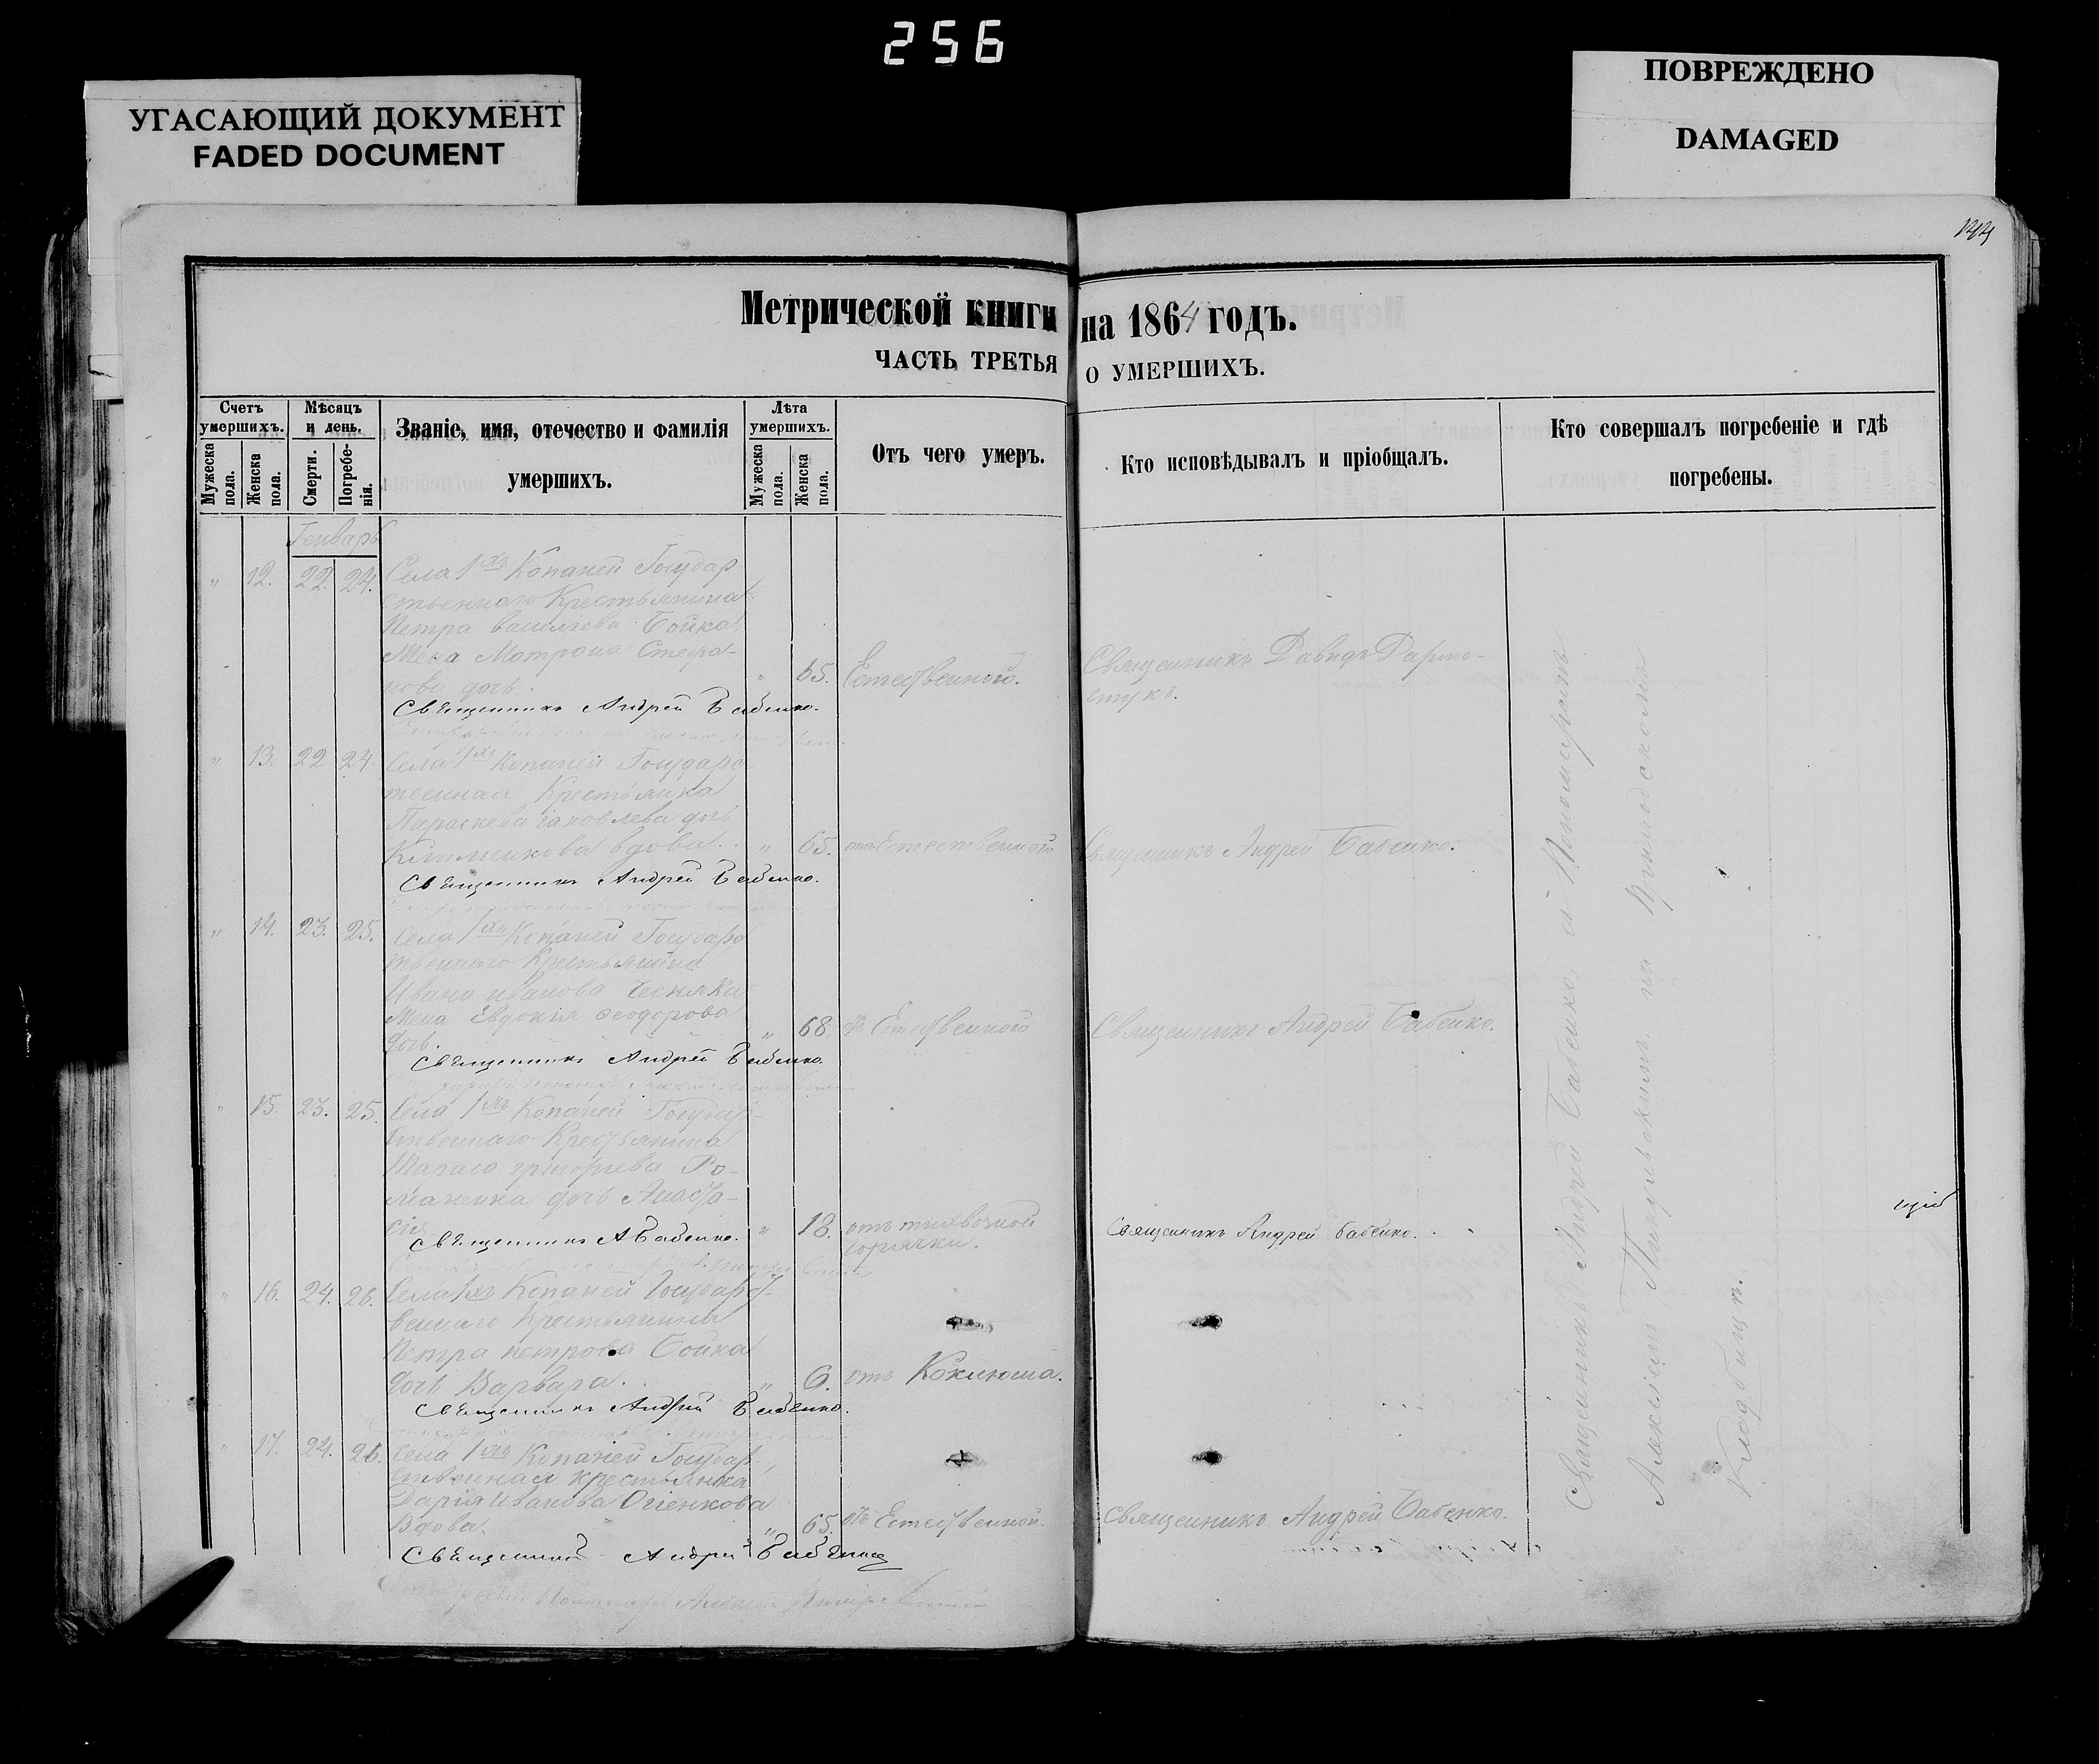 256
УГАСАЮЩИЙ ДОКУМЕНТ
FADED DOCUMENT
ПОВРЕЖДЕНО
DAMAGED
Метрической книги на 1864 годъ.
ЧАСТЬ ТРЕТЬЯ О УМЕРШИХЪ.
Счетъ умершихъ.
Мужеска пола.
Женска пола.
Мѣсяцъ и день.
Смерти.
Погребенія.
Званіе, имя, отечество и фамилія умершихъ.
Лѣта умершихъ.
Мужеска пола.
Женска пола.
Отъ чего умеръ.
Кто исповѣдывалъ и пріобщалъ.
Кто совершалъ погребеніе и гдѣ погребены.
Генварь
" 12. 22. 24. Села 1хъ Копаней Государ-
ственнаго Крестьянина
Петра Васильева Бойка
Жена Мотрона Стефа-
нова дочь. " 65. Естественного. Священникъ Давидъ
Священникъ Андрей Бабенко.
" 13. 22 24. Села 1хъ Копаней Государс
твенная Крестьянка
Параскева Іаковлева дочь
вдова. " 65. отъ Естественного Священникъ Андрей Бабенко.
Священникъ Андрей Бабенко.
" 14. 23. 25. Села 1хъ Копаней Государс
твенного Крестьянина
Ивана Иванова
Жена Евдокія Феодорова
дочь. " 68 отъ Естественного Священникъ Андрей Бабенко.
Священникъ Андрей Бабенко.
" 15. 23. 25. Села 1хъ Копаней Государ-
ственнаго Крестьянина
Тараса Григоріева Ро-
маненка дочь Анаста-
сія " 13. отъ горячки. Священникъ Андрей Бабенко.
Священникъ А Бабенко.
" 16. 24. 26. Села 1хъ Копаней Государст-
веннаго Крестьянина
Петра Петрова Бойка
дочь Варвара. " 6. отъ Коклюша.
Священникъ Андрей Бабенко.
" 17. 24. 26. Села 1хъ Копаней Государ-
ственная крестьянка
Дарія Иванова Огіенкова
Вдова. " 65. отъ Естественной. Священникъ Андрей Бабенко.
Священникъ Андрей Бабенко
Священникъ Андрей Бабенко
на приходскомъ
Кладбищѣ.